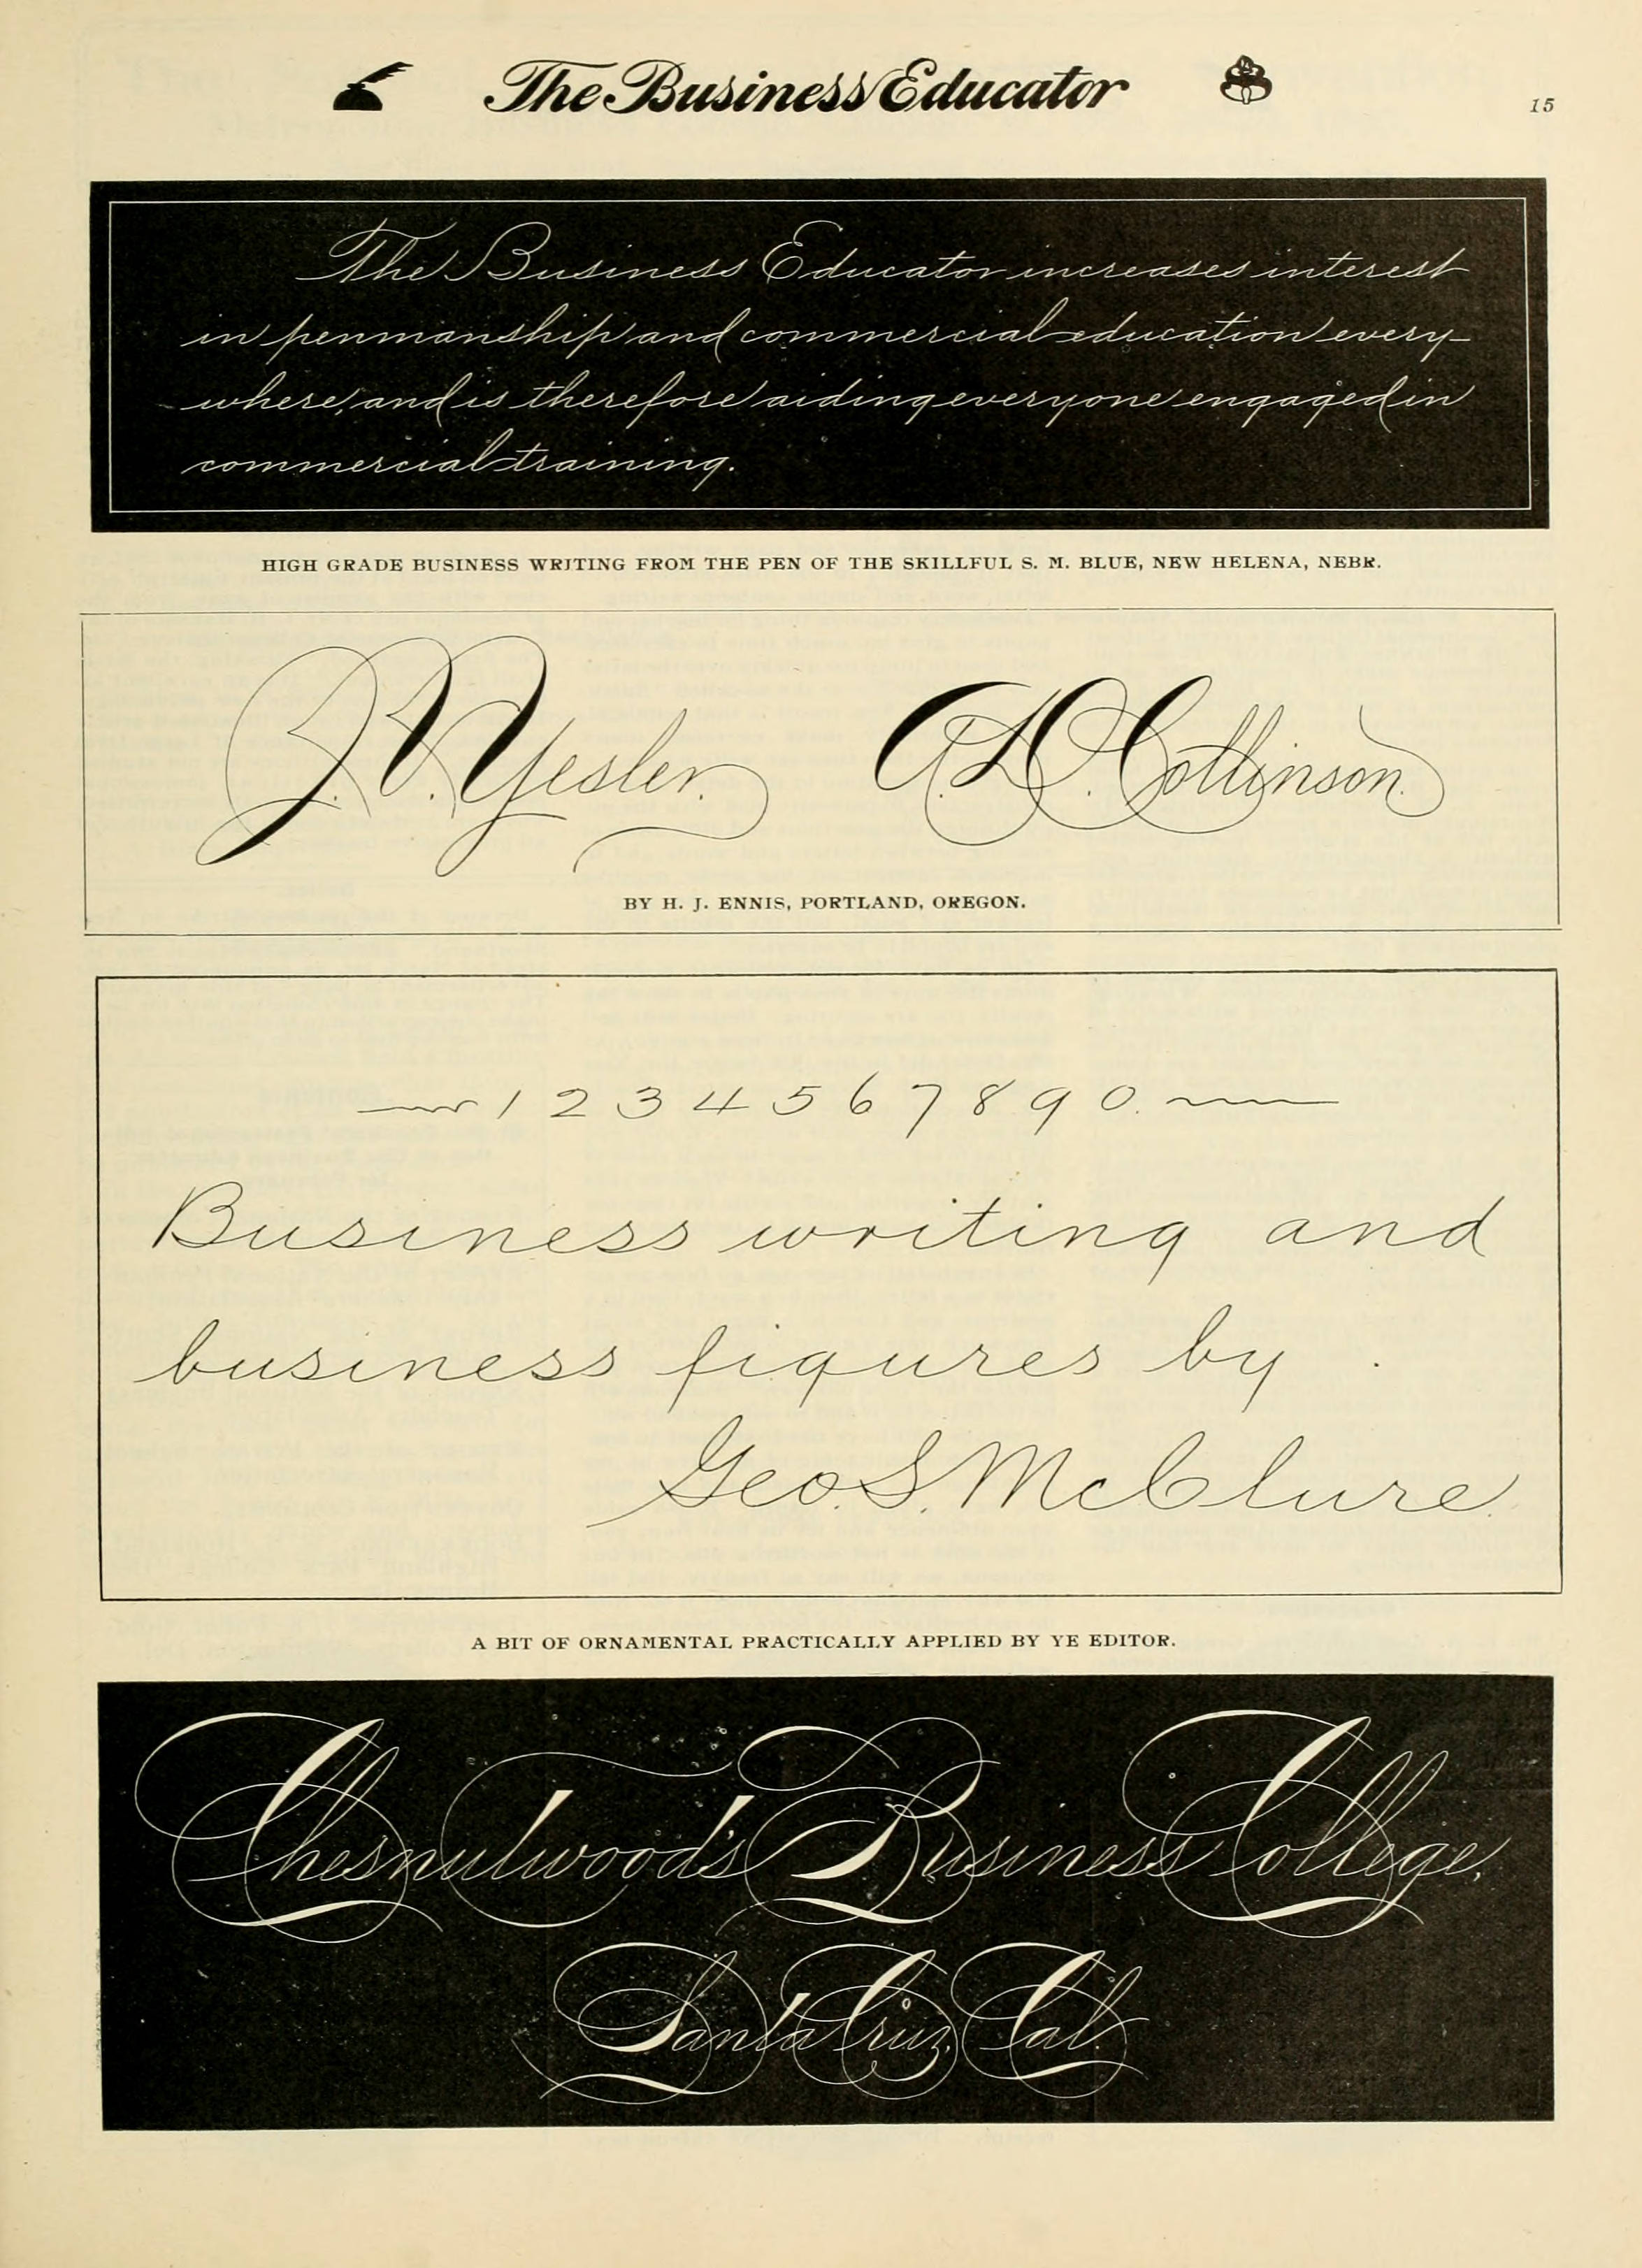 The Business Educator
15
The Business Educator increases interest
in penmanship and commercial education every-
where, and is therefore aiding everyone engaged in
commercial training.
HIGH GRADE BUSINESS WRITING FROM THE PEN OF THE SKILLFUL S. M. BLUE, NEW HELENA, NEBR.
J. V. Yesler. A. D. Collinson.
BY H. J. ENNIS, PORTLAND, OREGON.
1 2 3 4 5 6 7 8 9 0.
Business writing and
business figures by
Geo. S. McClure.
A BIT OF ORNAMENTAL PRACTICALLY APPLIED BY YE EDITOR.
Chesnutwood's Business College,
Santa Cruz, Cal.